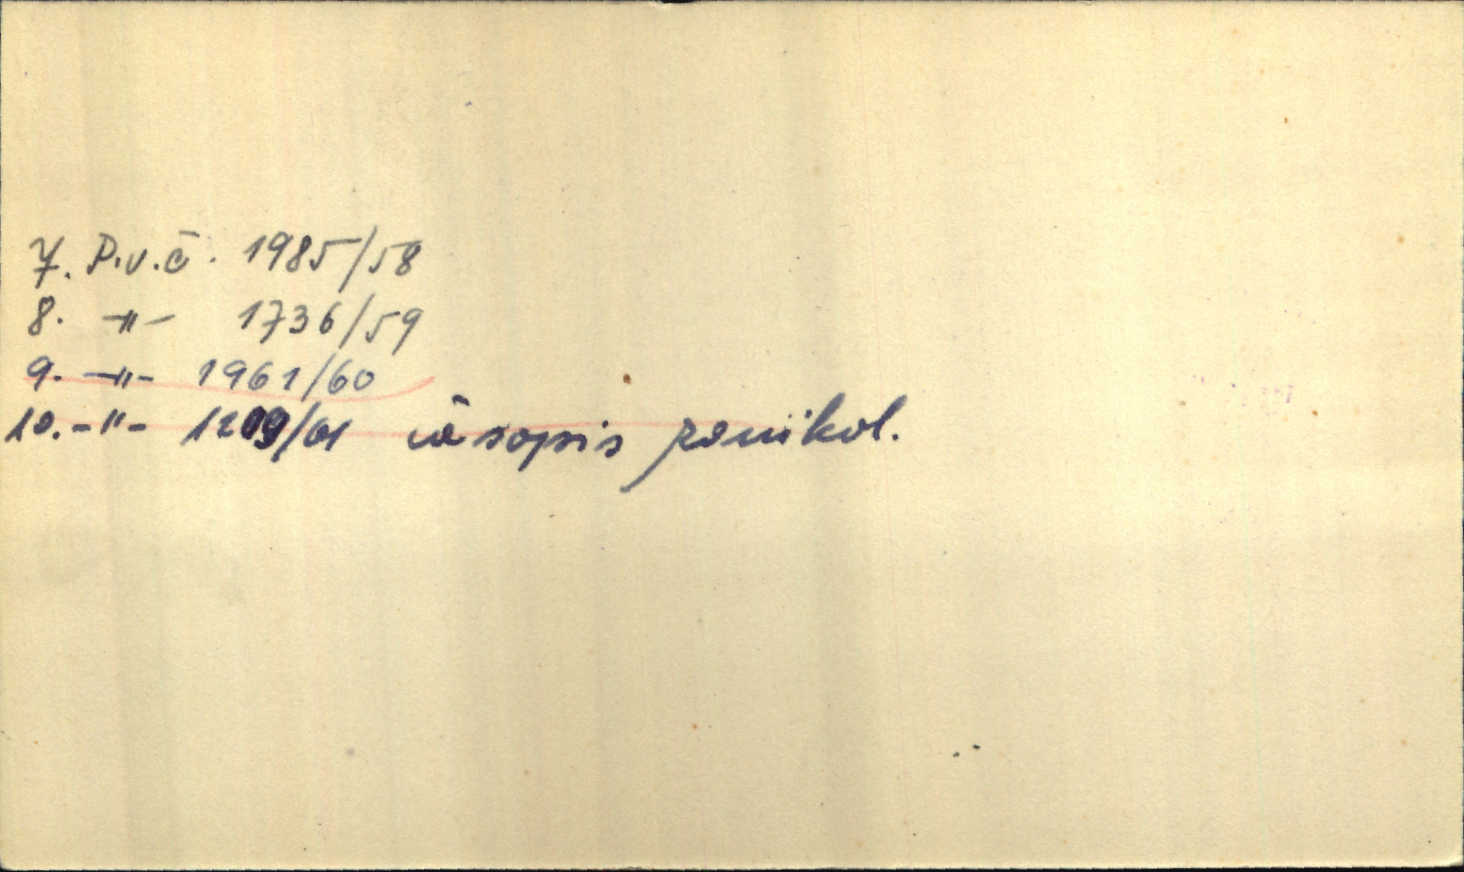 7. P.v.č. 1985/58
8. -"- 1736/59
9. -"- 1961/60
10. -"- 1209/61 časopis zanikol.